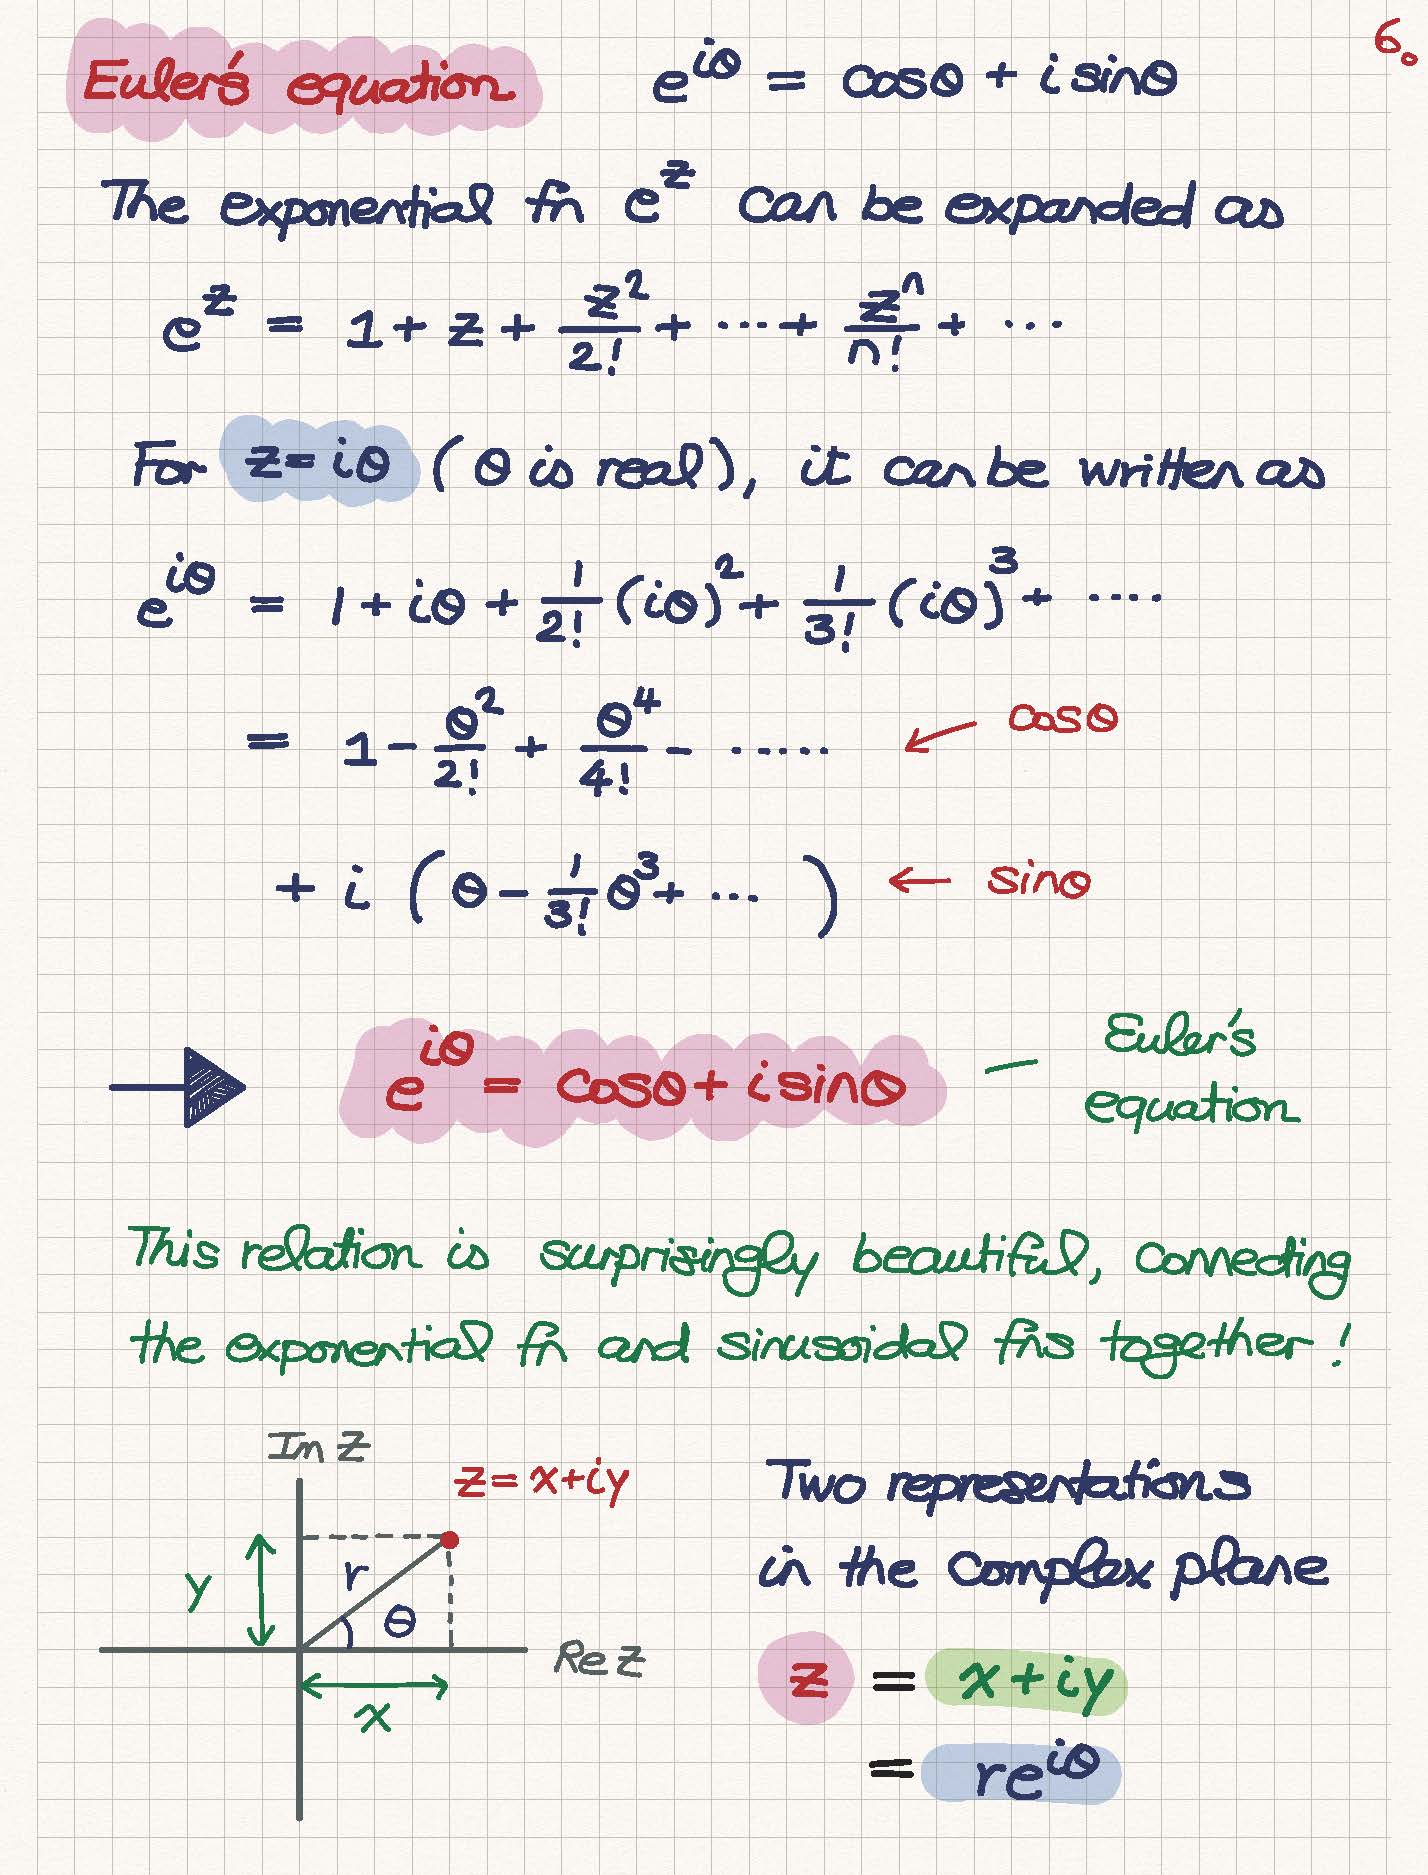 6.
Euler's equation e^{iθ} = cosθ + i sinθ
The exponential fn e^z can be expanded as
e^z = 1 + z + z^2/2! + ··· + z^n/n! + ···
For z = iθ (θ is real), it can be written as
e^{iθ} = 1 + iθ + 1/2! (iθ)^2 + 1/3! (iθ)^3 + ····
= 1 - θ^2/2! + θ^4/4! - ······ ← cosθ
+ i (θ - 1/3! θ^3 + ··· ) ← sinθ
→ e^{iθ} = cosθ + i sinθ — Euler's
equation
This relation is surprisingly beautiful, connecting
the exponential fn and sinusoidal fns together!
Im z
z = x + iy
y
r
θ
Re z
x
Two representations
in the complex plane
z = x + iy
= re^{iθ}